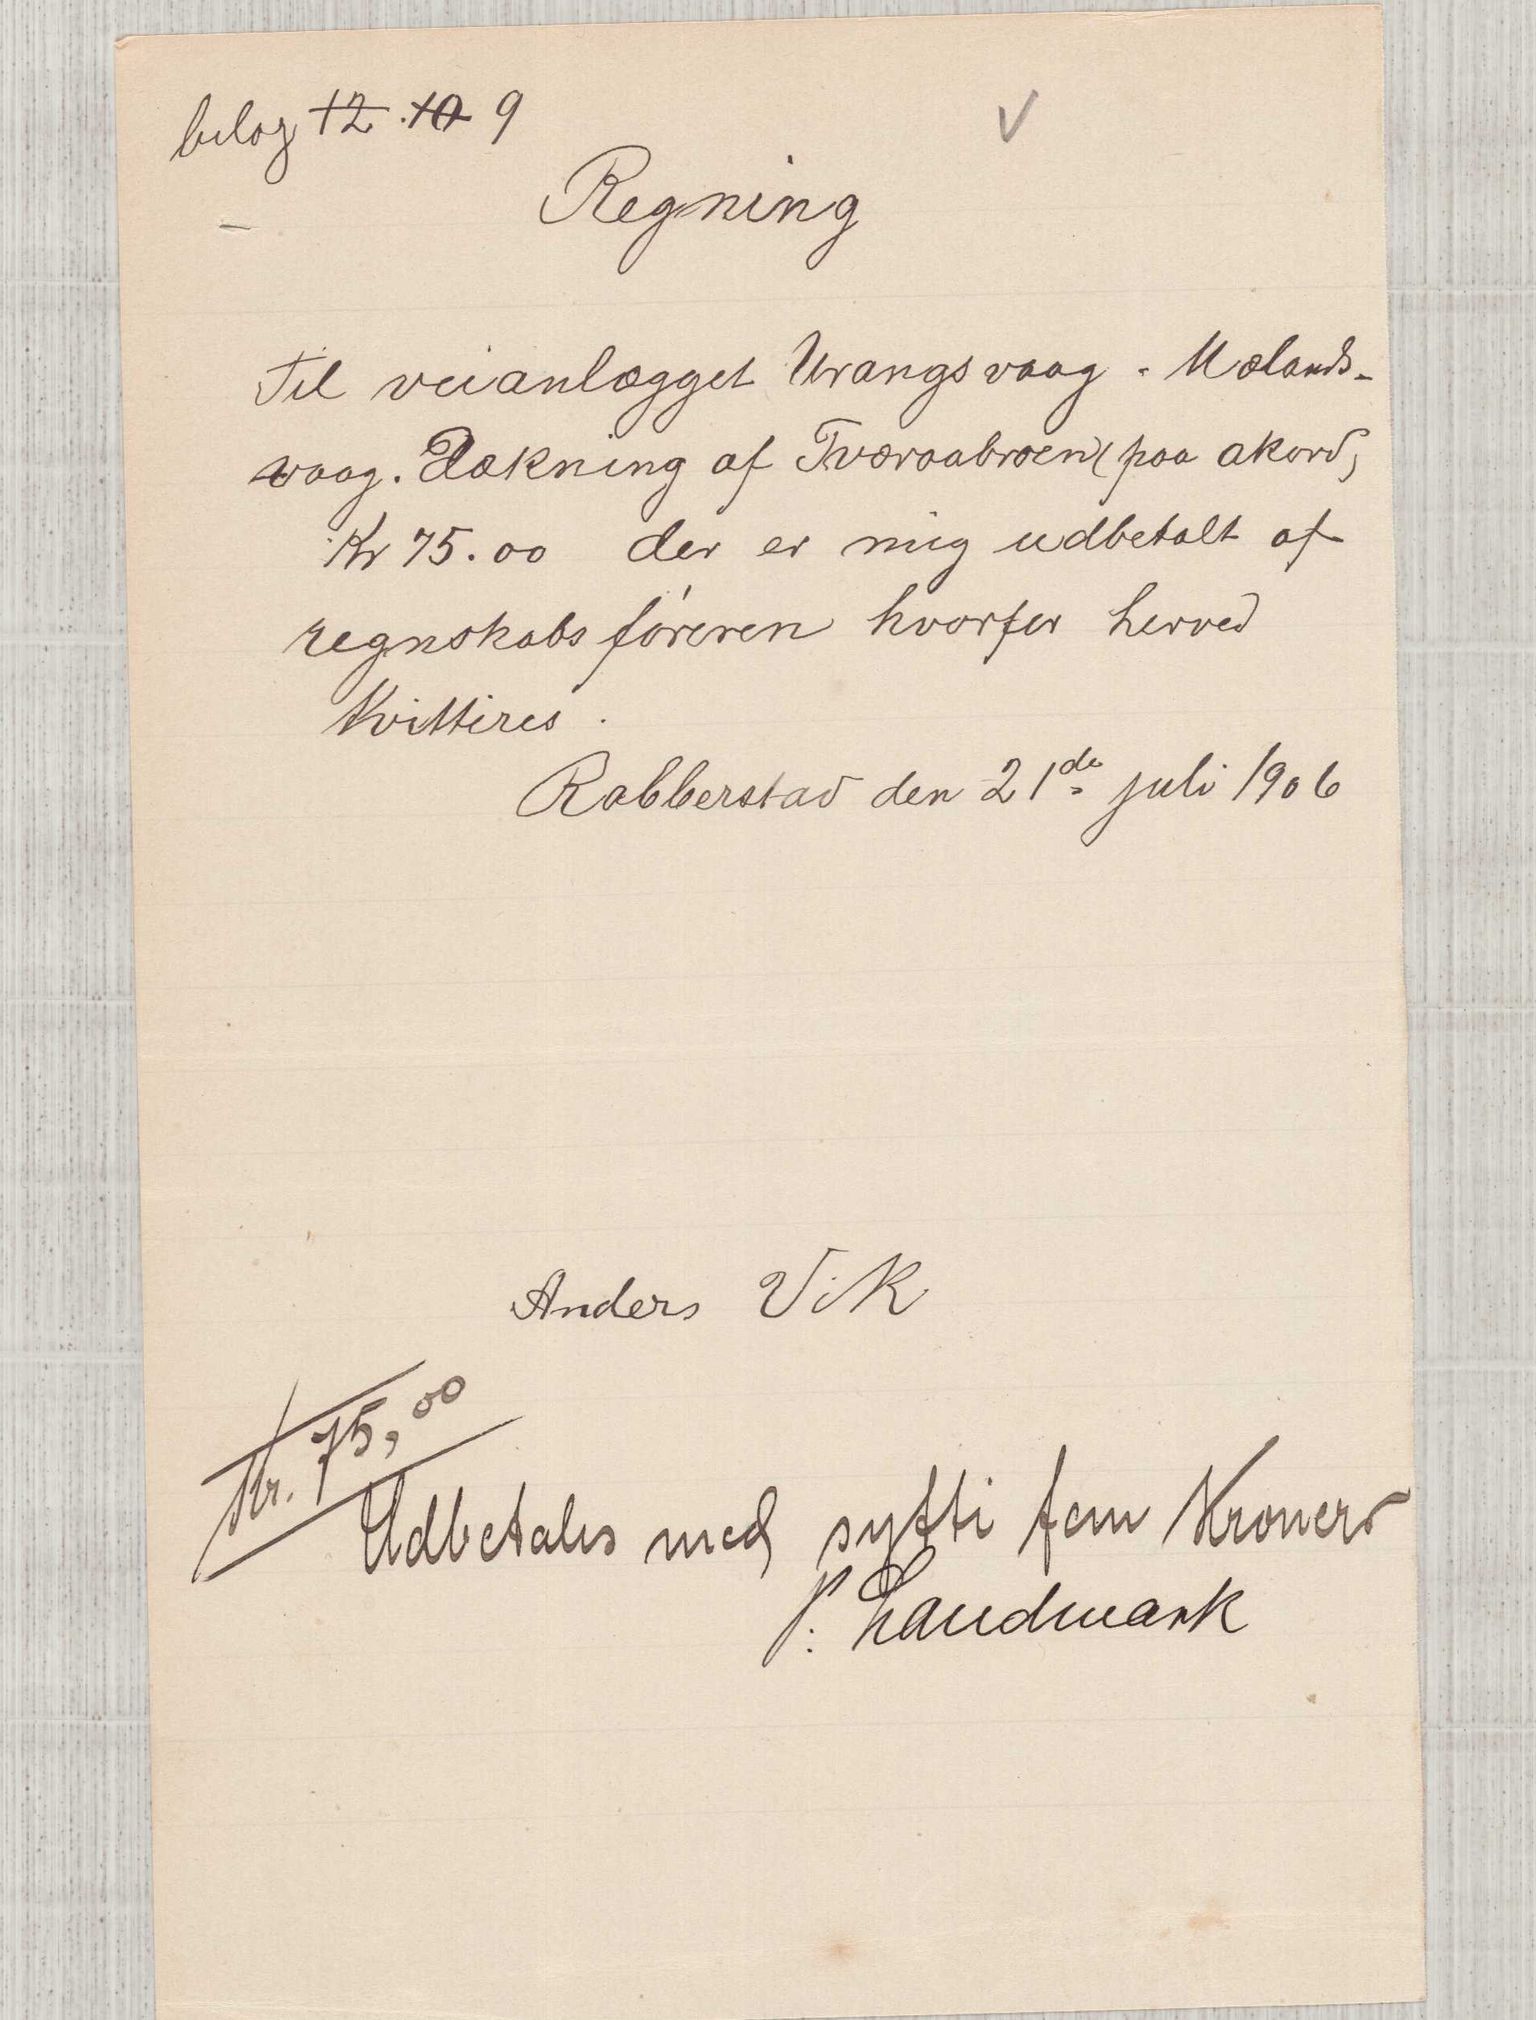 bilag 12 10 9
Regning
Til veianlægget Urangsvaag - Mælands-
vaag. Dækning af Tværaabroen (paa akord)
Kr 75.00 der er mig udbetalt af
regnskabsføreren hvorfor herved
Kvitteres.
Rabberstad den 21de juli 1906
Anders Vik
Kr. 75,00
Udbetales med sytti fem Kroner
P. Landmark